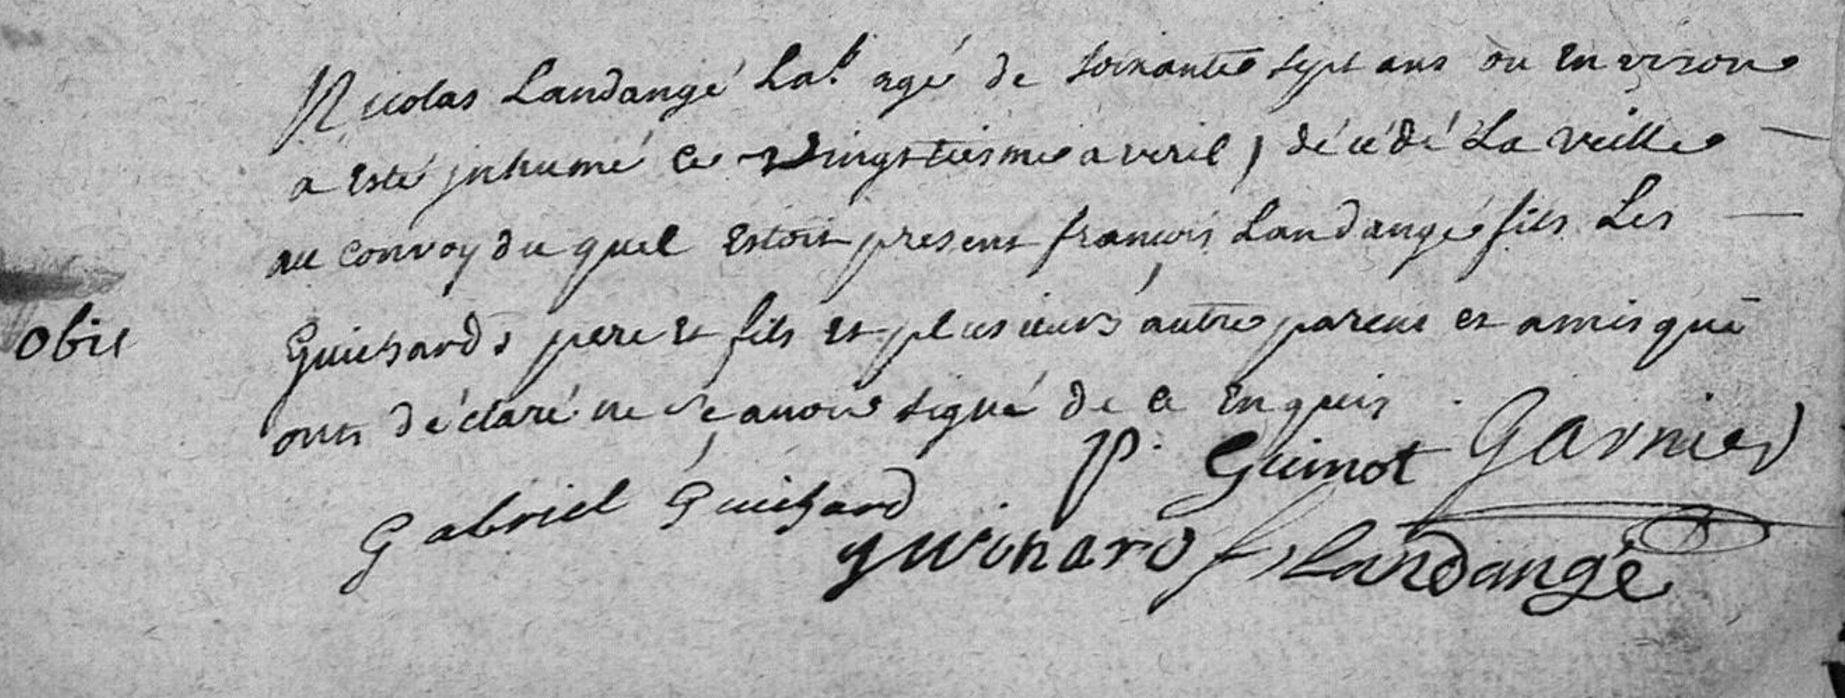 Nicolas Landangé Lab. agé de soixante sept ans ou environ
a esté jnhumé ce vingtiesme avril, décédé La veille
au convoy du quel Estoit present françois Landangé fils Les
obit
Guichards pere Et fils Et plusieurs autre parens et amis qui
ont déclaré ne sçavoir signé de ce Enquis.
P. Guimot Garnier
Gabriel Guichard
guichard f Landangé